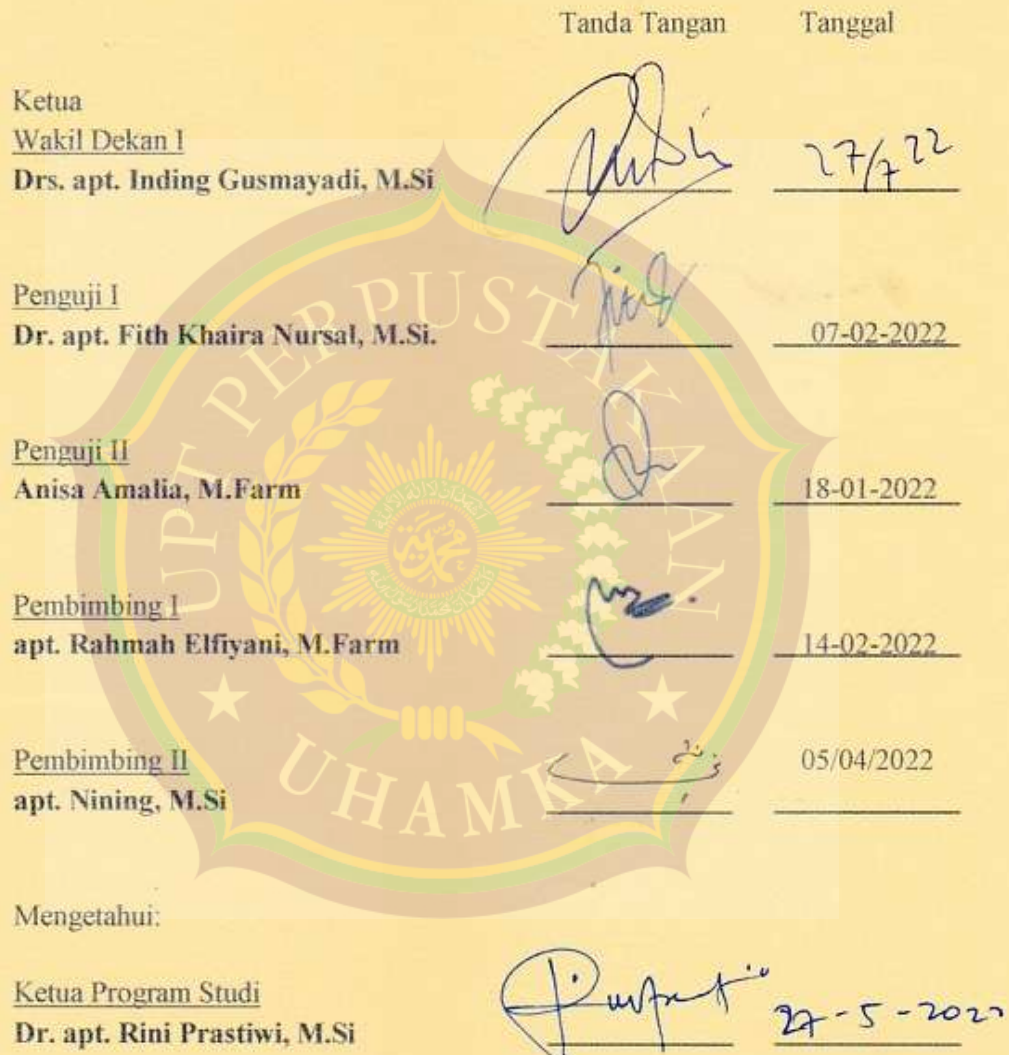 Tanda Tangan Tanggal
Ketua
Wakil Dekan I
Drs. apt. Inding Gusmayadi, M.Si 27/7 22
Penguji I
Dr. apt. Fith Khaira Nursal, M.Si. 07-02-2022
Penguji II
Anisa Amalia, M.Farm 18-01-2022
Pembimbing I
apt. Rahmah Elfiyani, M.Farm 14-02-2022
Pembimbing II 05/04/2022
apt. Nining, M.Si
Mengetahui:
Ketua Program Studi
Dr. apt. Rini Prastiwi, M.Si 27-5-2022
UPT PERPUSTAKAAN
UHAMKA